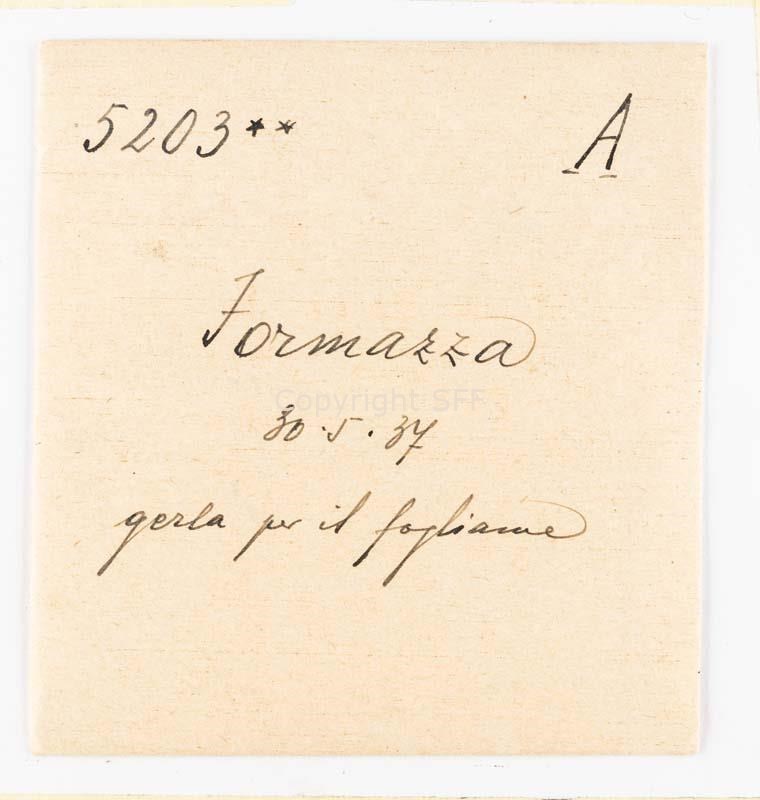 5203** A
Formazza
Copyright SFF
30.5.37
gerla per il fogliame